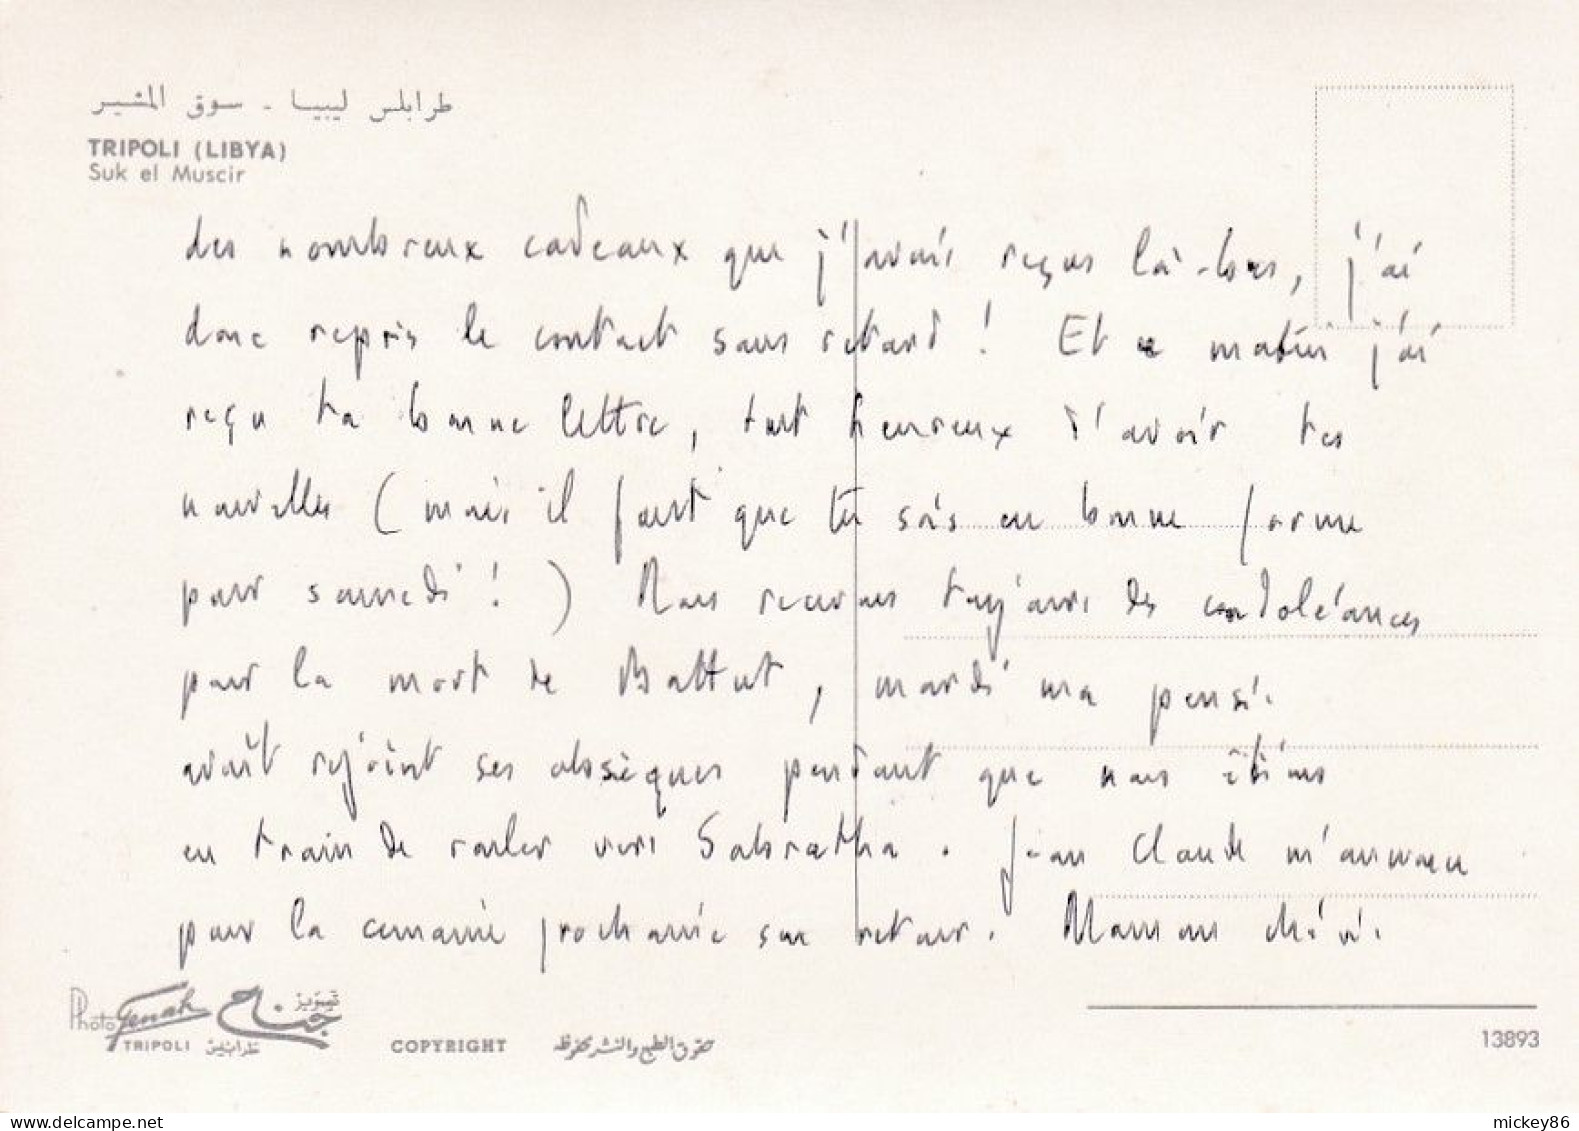 طرابلس ليبيا - سوق المشير
TRIPOLI (LIBYA)
Suk el Muscir
des nombreux cadeaux que j'avais reçus là-bas, j'ai
donc repris le contact sans retard ! Et ce matin j'ai
reçu ta bonne lettre, tout heureux d'avoir tes
nouvelles (mais il faut que tu sois en bonne forme
pour samedi ! ) Nous recevons toujours des condoléances
pour la mort de Battut, mardi ma pensée
avait rejoint ses obsèques pendant que nous étions
en train de rouler vers Sabratha. Jean Claude m'annonce
pour la semaine prochaine son retour. Maman chérie
Photo Genah تصوير جناح
TRIPOLI طرابلس
COPYRIGHT حقوق الطبع والنشر محفوظة
13893
delcampe.net
mickey86